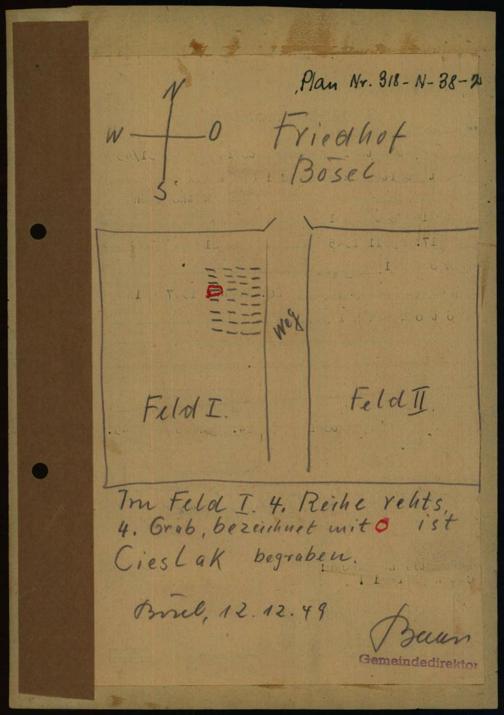 Plan Nr. 318-N-38-2
N
W O
S
Friedhof
Bösel
Weg
Feld I.
Feld II
Im Feld I. 4. Reihe rehts,
4. Grab, bezeichnet mit O ist
Cieslak begraben.
Bösel, 12.12.49
Gemeindedirektor